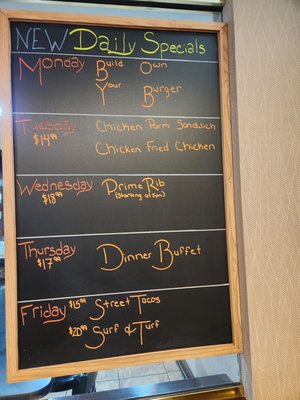 NEW Daily Specials
Monday Build Own
Your Burger
Tuesday Chicken Parm Sandwich
$14.99
Chicken Fried Chicken
Wednesday Prime Rib
$18.99 (Starting at 5pm)
Thursday Dinner Buffet
$17.99
Friday $15.99 Street Tacos
$20.99 Surf & Turf